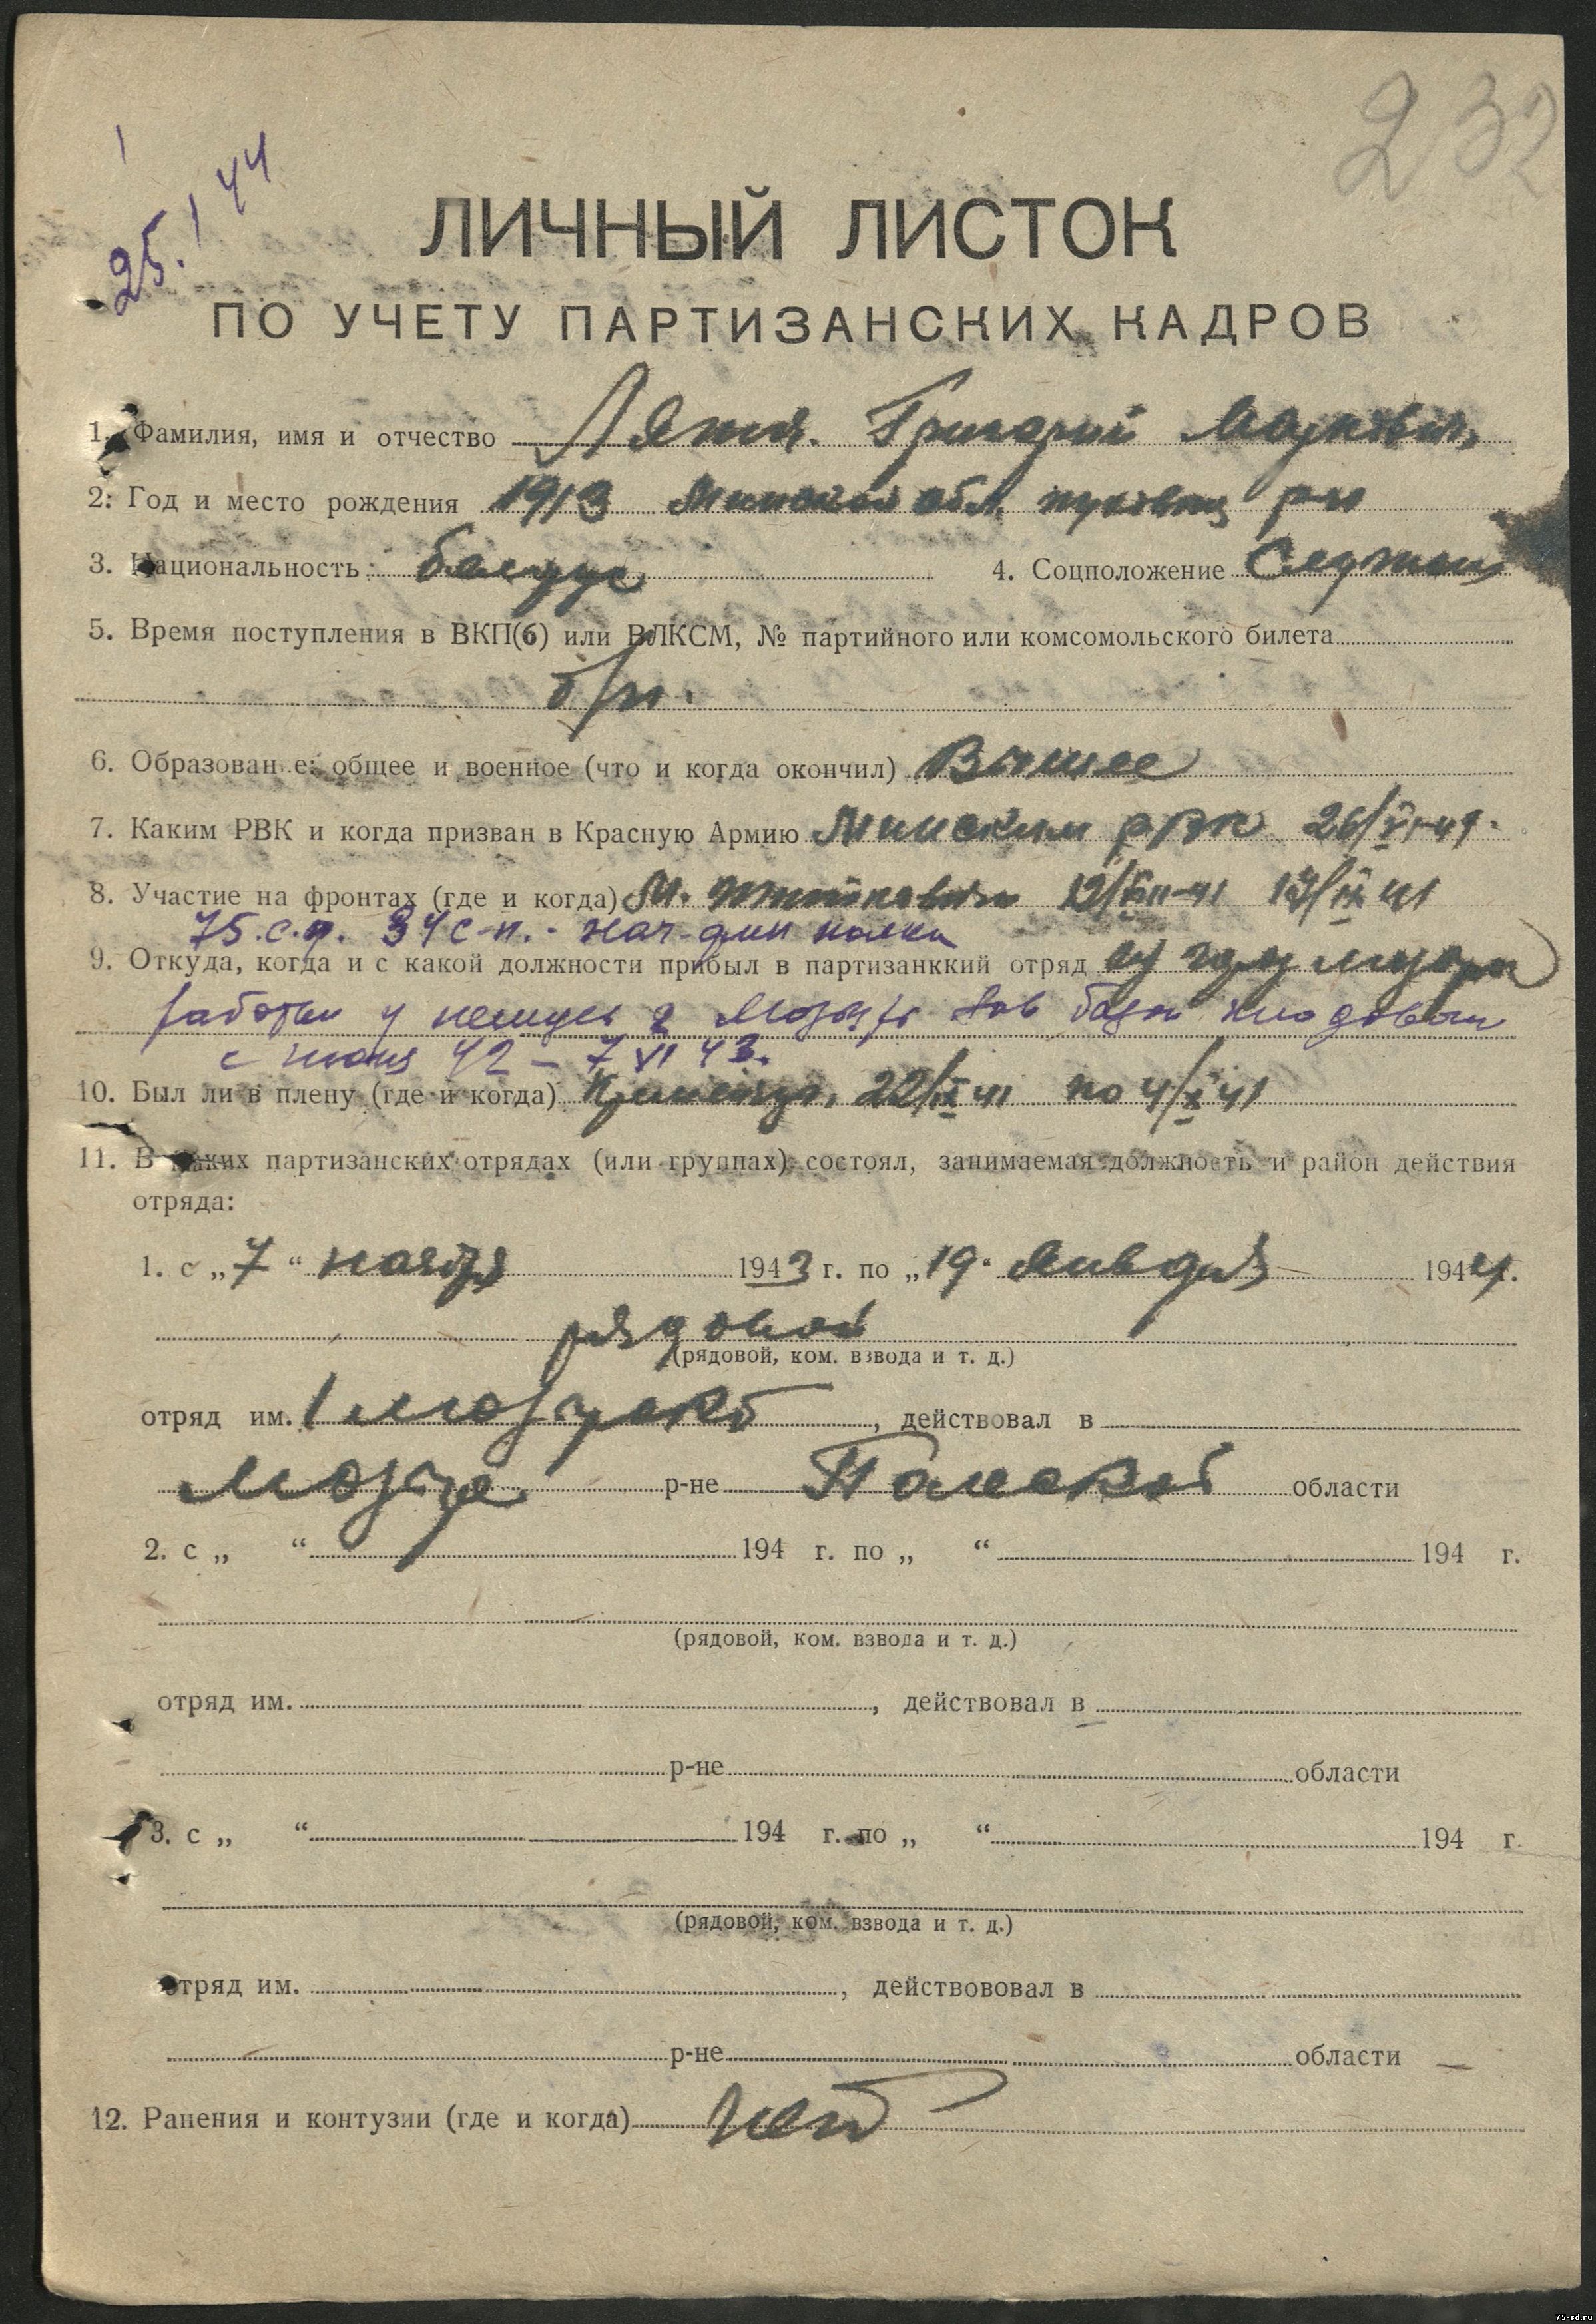 232
25. I 44
ЛИЧНЫЙ ЛИСТОК
ПО УЧЕТУ ПАРТИЗАНСКИХ КАДРОВ
1. Фамилия, имя и отчество Григорий
2. Год и место рождения 1913 Минской обл. р-н
3. Национальность: белорус 4. Соцположение Служащ
5. Время поступления в ВКП(б) или ВЛКСМ, № партийного или комсомольского билета
б/п.
6. Образован е: общее и военное (что и когда окончил) Высшее
7. Каким РВК и когда призван в Красную Армию Минским рвк 26/VI-41.
8. Участие на фронтах (где и когда) М. Житковичи 12/VII-41 17/IX 41
75 с.д. 34 с-п. - нач-фин полка
9. Откуда, когда и с какой должности прибыл в партизанккий отряд из гор Мозыря
работал у немцев в Мозыре зав базой кладовым
с июня 42 - 7 XI 43.
10. Был ли в плену (где и когда) Кременчуг, 22/IX 41 по 4/X 41
11. В каких партизанских отрядах (или группах) состоял, занимаемая должность и район действия
отряда:
1. с „7“ ноября 1943 г. по „19“ Января 1944 г.
рядовой
(рядовой, ком. взвода и т. д.)
отряд им. 1 Мозырский, действовал в
Мозыр р-не Полеской области
2. с „ “ 194 г. по „ “ 194 г.
(рядовой, ком. взвода и т. д.)
отряд им. , действовал в
р-не области
3. с „ “ 194 г. по „ “ 194 г.
(рядовой, ком. взвода и т. д.)
отряд им. , действововал в
р-не области
12. Ранения и контузии (где и когда) нет
75-sd.ru